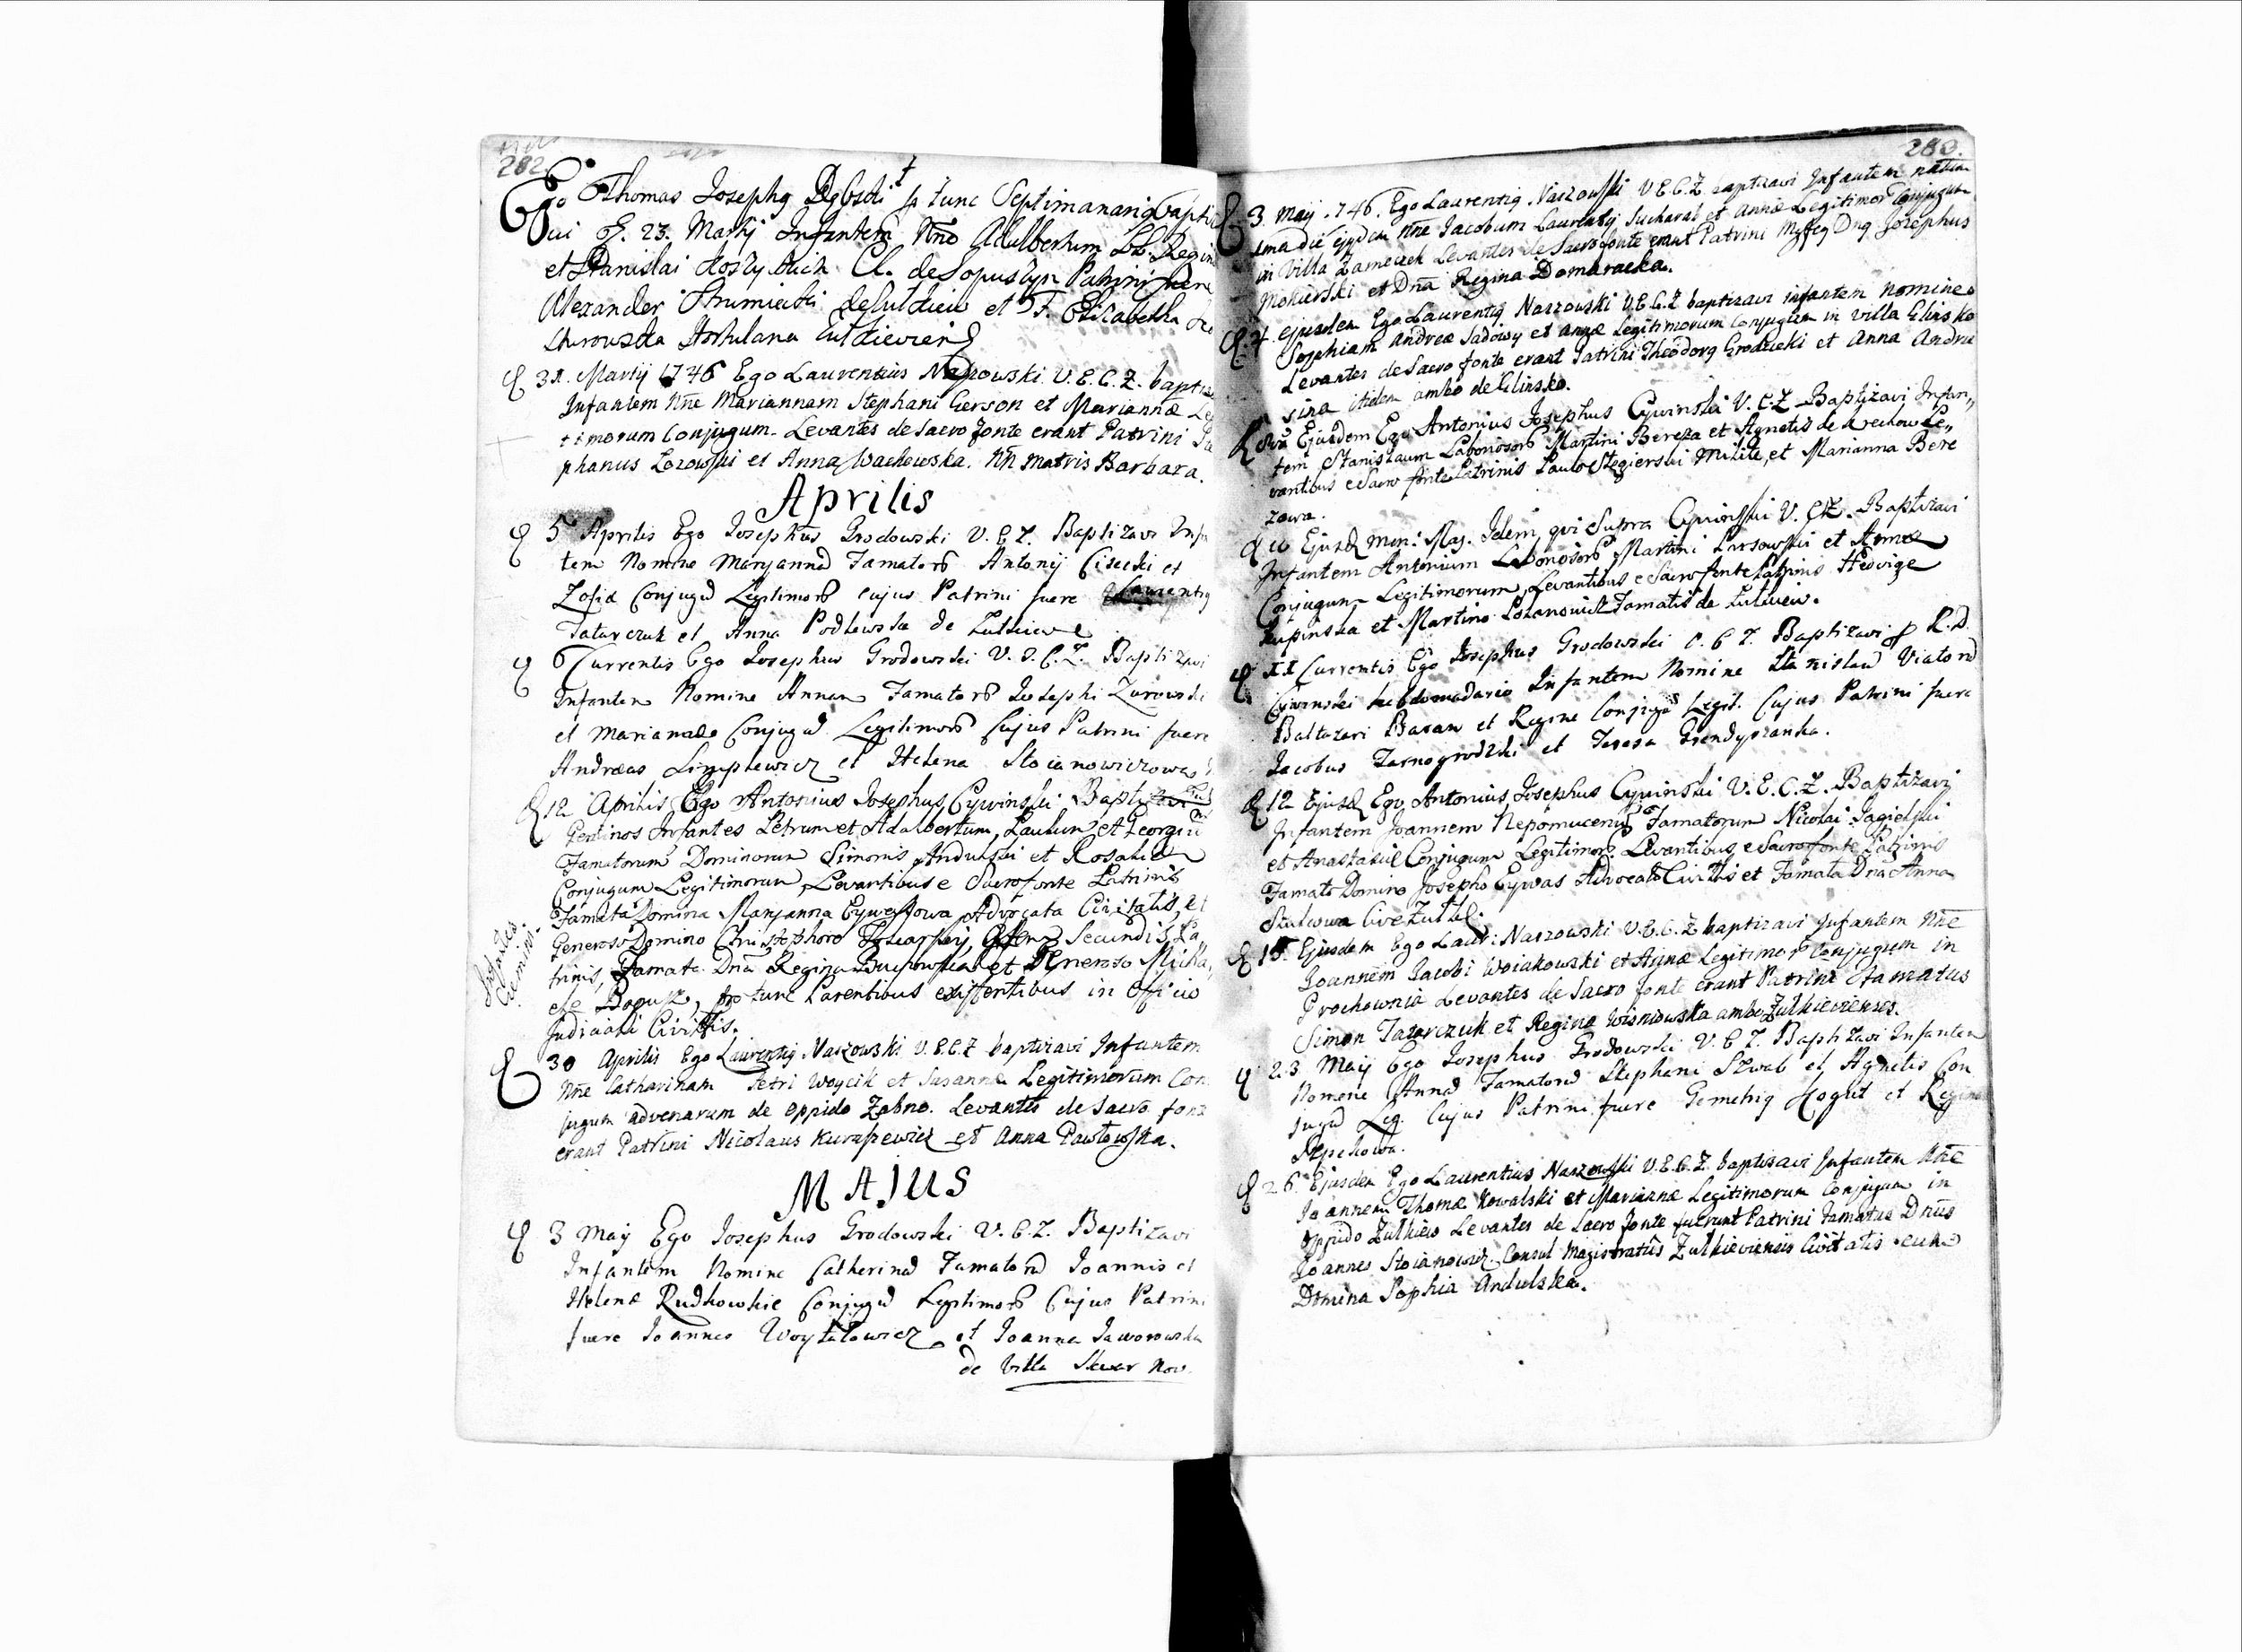 282
Ego Thomas Josephq Dębski p tunc Septimanariq bapti
vi 23. Martij Infantem Nne Adalbertum LL. Regin
et Stanislai Cl. de Sopuszyn Patrini fuere
Alexander Strumiecki de et F. Elisabetha
Hortulana
31. Martij 1746 Ego Laurentius Naszowski V. E. C. Z. baptiza
Infantem Nne Mariannam Stephani Gerson et Mariannæ Le
timorum Conjugum. Levantes de Sacro fonte erant Patrini
phanus Lozowski et Anna Wachowska. Nn Matris Barbara.
Aprilis
5 Aprilis Ego Josephus Grodowski V. E. Z. Baptizavi Infa
tem Nomine Maryannā Famatorō Antonij Cisecki et
Zofiæ Conjugū Legitimorō cujus Patrini fuere Laurentiq
Tatarczuk et Anna Podlewska de Zulkiew
6 Currentis Ego Josephus Grodowski V. E. C. Z. Baptizavi
Infantem Nomine Annam Famatorō Josephi Zurowski
et Marianæ Conjugū Legitimorō Cujus Patrini fuere
Andræas et Helena Stoianowiczowa
12 Aprilis Ego Antonius Josephus Cywinski Bapti
Geminos Infantes Petrum et Adalbertum, Paulum et Georgiū
Famatorum Dominorum Simonis Andulski et Rosaliæ
Conjugum Legitimorum, Levantibus e Sacro fonte Patrinis
Famata Domina Maryanna Eywasowa Advocata Civitatis, et
Generoso Domino Christophoro Secundis Pa
trinis, Famata Dnā Regina et Generoso Micha
ele Bogusz, pro tunc Parentibus existentibus in Officio
Judiciali Civittis.
Infantes
Gemini.
30 Aprilis Ego Laurentiq Naszowski V. E. C. Z baptizavi Infantem
Nne Catharinam Petri Woycik et Susannæ Legitimorum Con
jugum advenarum de oppido Zabno. Levantes de Sacro fon
erant Patrini Nicolaus et Anna Pawłowska.
MAJUS
3 Maij Ego Josephus Grodowski V. E. Z. Baptizavi
Infantem Nomine Catherinā Famatorū Joannis et
Helenæ Rudkowskie Conjugū Legitimorō Cujus Patrini
fuere Joannes Woytalowicz et Joanna Jaworowska
de Villa Skwar Now.
283.
3 Maij 1746. Ego Laurentiq Naszowski V E. C. Z baptizavi Infantem natum
ima die ejusdem Nne Jacobum Laurentij Sucharal et Annæ Legitimorō Conjugum
in Villa Zameczek Levantes de Sacro fonte erant Patrini Mgfcq Dnq Josephus
Mokierski et Dnā Regina Domaracka.
7. ejusdem Ego Laurentiq Naszowski V. E. C. Z baptizavi infantem nomine
Sophiam Andreæ Sadowy et annæ Legitimorum Conjugum in Villa Glinsko
Levantes de Sacro fonte erant Patrini Theodorq Grodzicki et Anna Andru
sina itidem ambo de Glinsko.
8va Ejusdem Ego Antonius Josephus Cywinski V. C. Z Baptizavi Infan„
tem Stanislaum Laboriosorō Martini Bereza et Agnetis de Le„
vantibus e Sacro fonte Patrinis Paulo Stegierski Milite, et Marianna Bere
zowa.
10 Ejusd. men: Maj. Idem, qvi Supra Cywinski V. C. Z. Baptizavi
Infantem Antonium Laboriosorō Martini et Annæ
Conjugum Legitimorum, Levantibus e Sacro fonte Patrinis Hedvige
Rupinska et Martino Famatis de Zulkiew.
11 Currentis Ego Josephus Grodowski C. E Z. Baptizavi p R. D.
Cywinski hebdomadario Infantem Nomine Stanislaū Viatorū
Baltazari Baran et Reginæ Conjugū Legit. Cujus Patrini fuere
Jacobus Tarnogrodzki et Teresa
12 Ejusd Ego Antonius Josephus Cywinski V. E. C. Z. Baptizavi
Infantem Joannem Nepomucenū Famatorum Nicolai Jagielski
et Anastasiæ Conjugum Legitimorō. Levantibus e Sacro fonte Patrinis
Famato Domino Josepho Eywas Advocato Civittis et Famata Dnā Anna
Cive Zulkl.
15. Ejusdem Ego Laur: Naszowski V. E. C. Z baptizavi Infantem Nne
Joannem Jacobi Woiakowski et Agnæ Legitimorō Conjugum in
Prochownia Levantes de Sacro fonte erant Patrini Famatus
Simon Tatarczuk et Regina Wisniowska ambo Zulkievienses.
23. Maij Ego Josephus Grodowski V. E Z. Baptizavi Infantem
Nomine Annā Famatorū Stephani Szwab et Agnetis Con
jugū Leg. Cujus Patrini fuere Kogut et Regina
26. Ejusdem Ego Laurentius Naszowski V. E. C. Z. baptizavi Infantem Nne
Joannem Thomæ Kowalski et Mariannæ Legitimorum Conjugum in
Oppido Zulkiew Levantes de Sacro fonte fuerunt Patrini Famatus Dnūs
Joannes Stoianowicz Consul Magistratūs Zulkieviensis Civitatis cum
Domina Sophia Andulska.